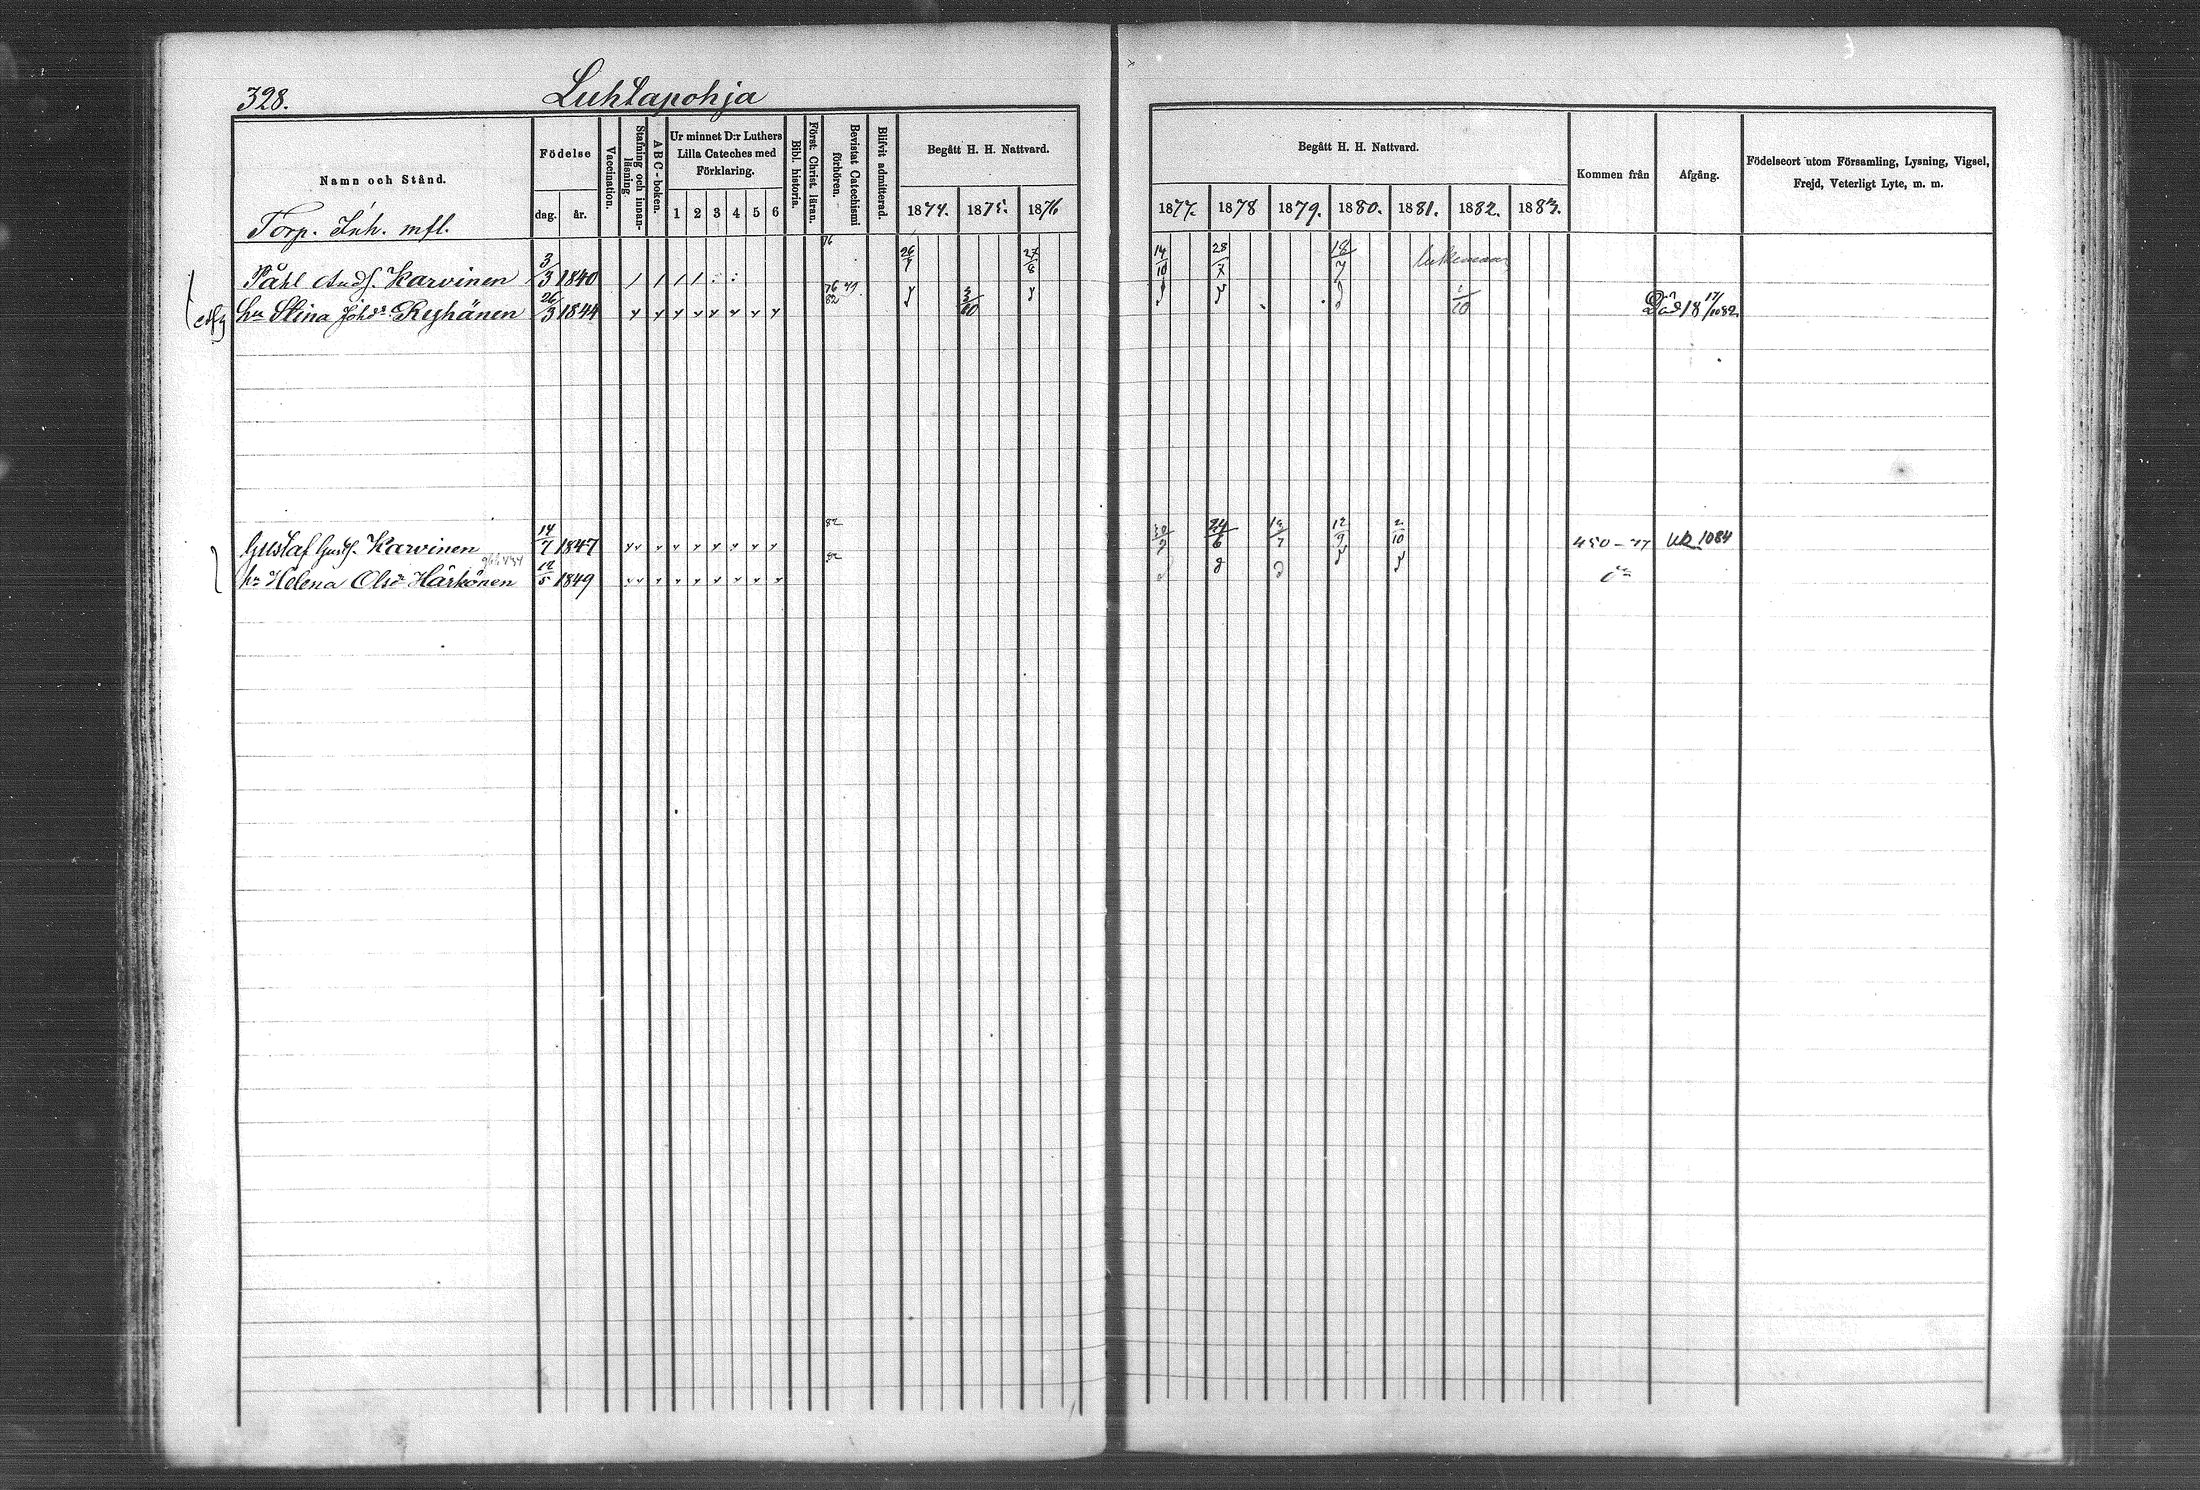 328. Luhtapohja
Namn och Stånd.
Födelse
dag.
år.
Vaccination.
Stafning och innan-
läsning
ABC-boken.
Ur minnet D:r Luthers
Lilla Cateches med
Förklaring.
1 2 3 4 5 6
Bibl. historia.
Först. Christ. läran.
Bevistat Catechismi
förhören.
Blifvit admitterad.
Begått H. H. Nattvard.
1874. 1875. 1876
Begått H. H. Nattvard.
1877. 1878 1879. 1880. 1881. 1882. 1883.
Kommen från
Afgång.
Födelseort utom Församling, Lysning, Vigsel,
Frejd, Veterligt Lyte, m. m.
Torp. Inh. mfl.
Påhl Andς. Karvinen 3/3 1840 76 26/7 27/8 14/10 28/7 18/7
hu Stina Johdr Ryhänen 26/3 1844 76 79 82 3/10 1/10 Död 18 17/10 82.
Gustaf Gustς. Karvinen 14/7 1847 82 24/6 12/9 2/10 450-77 UR 1084
hu Helena Olsdr Härkönen 12/5 1849 82 do